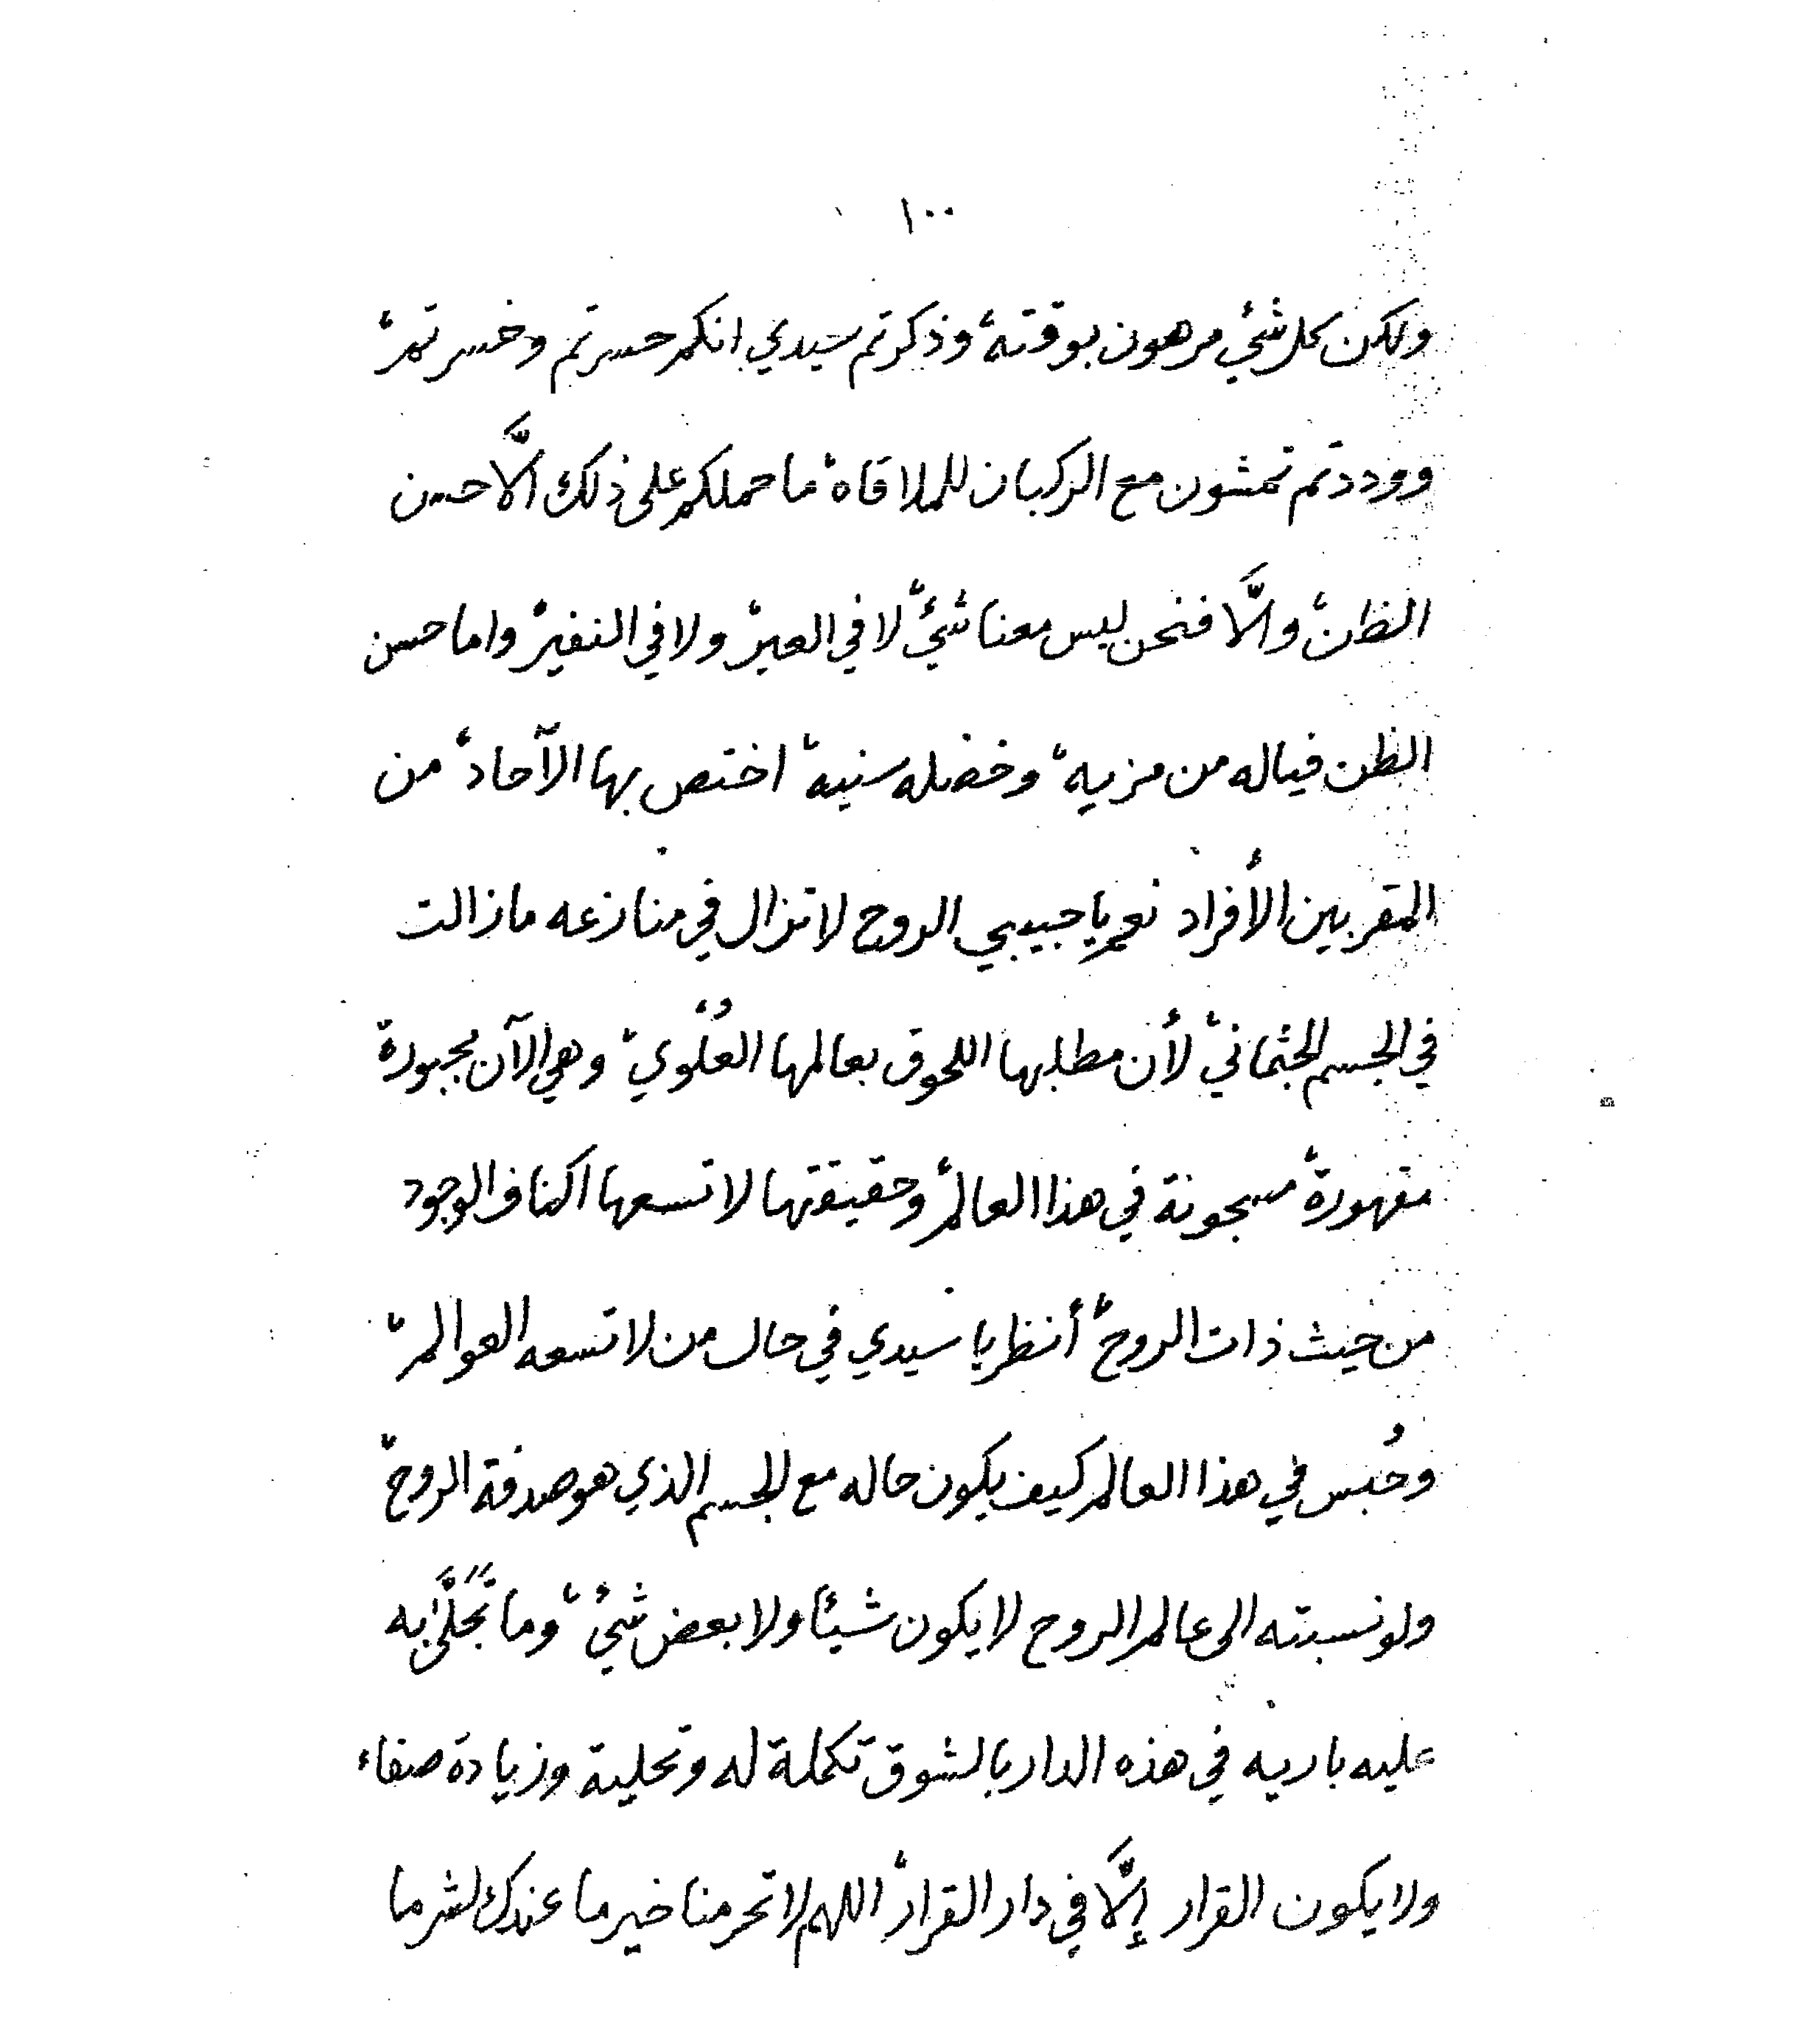 ١٠٠
ولكن كل شئي مرهون بوقته، وذكرتم سيدي انكم حسرتم وخسرتم،
ووددتم تمشون مع الركبان للملاقاه، ما حملكم على ذلك الَّا حسن
الظن، والَّا فنحن ليس معنا شئي، لا في العير، ولا في النفير، واما حسن
الظن فياله من مزيه، وخصله سنيه، اختص بها الآحاد، من
المقربين الأفراد نعم يا حبيبي الروح لا تزال في منازعه ما زالت
في الجسم الجثماني، لأن مطلبها اللحوق بعالمها العُلْوي، وهي الآن مجبورة
مقهورة، مسجونة في هذا العالم، وحقيقتها لا تسعها اكناف الوجود
من حيث ذات الروح، أنظر يا سيدي في حال من لا تسعه العوالم،
وحُبس في هذا العالم كيف يكون حاله مع الجسم الذي هو صدفة الروح،
ولو نسبته الى عالم الروح لا يكون شيئا ولا بعض شئي، وما تَجَلَّى به
عليه باريه في هذه الدار بالشوق تكملة له وتحلية وزيادة صفاء
ولا يكون القرار إلَّا في دار القرار، اللهم لا تحرمنا خير ما عندك لشر ما